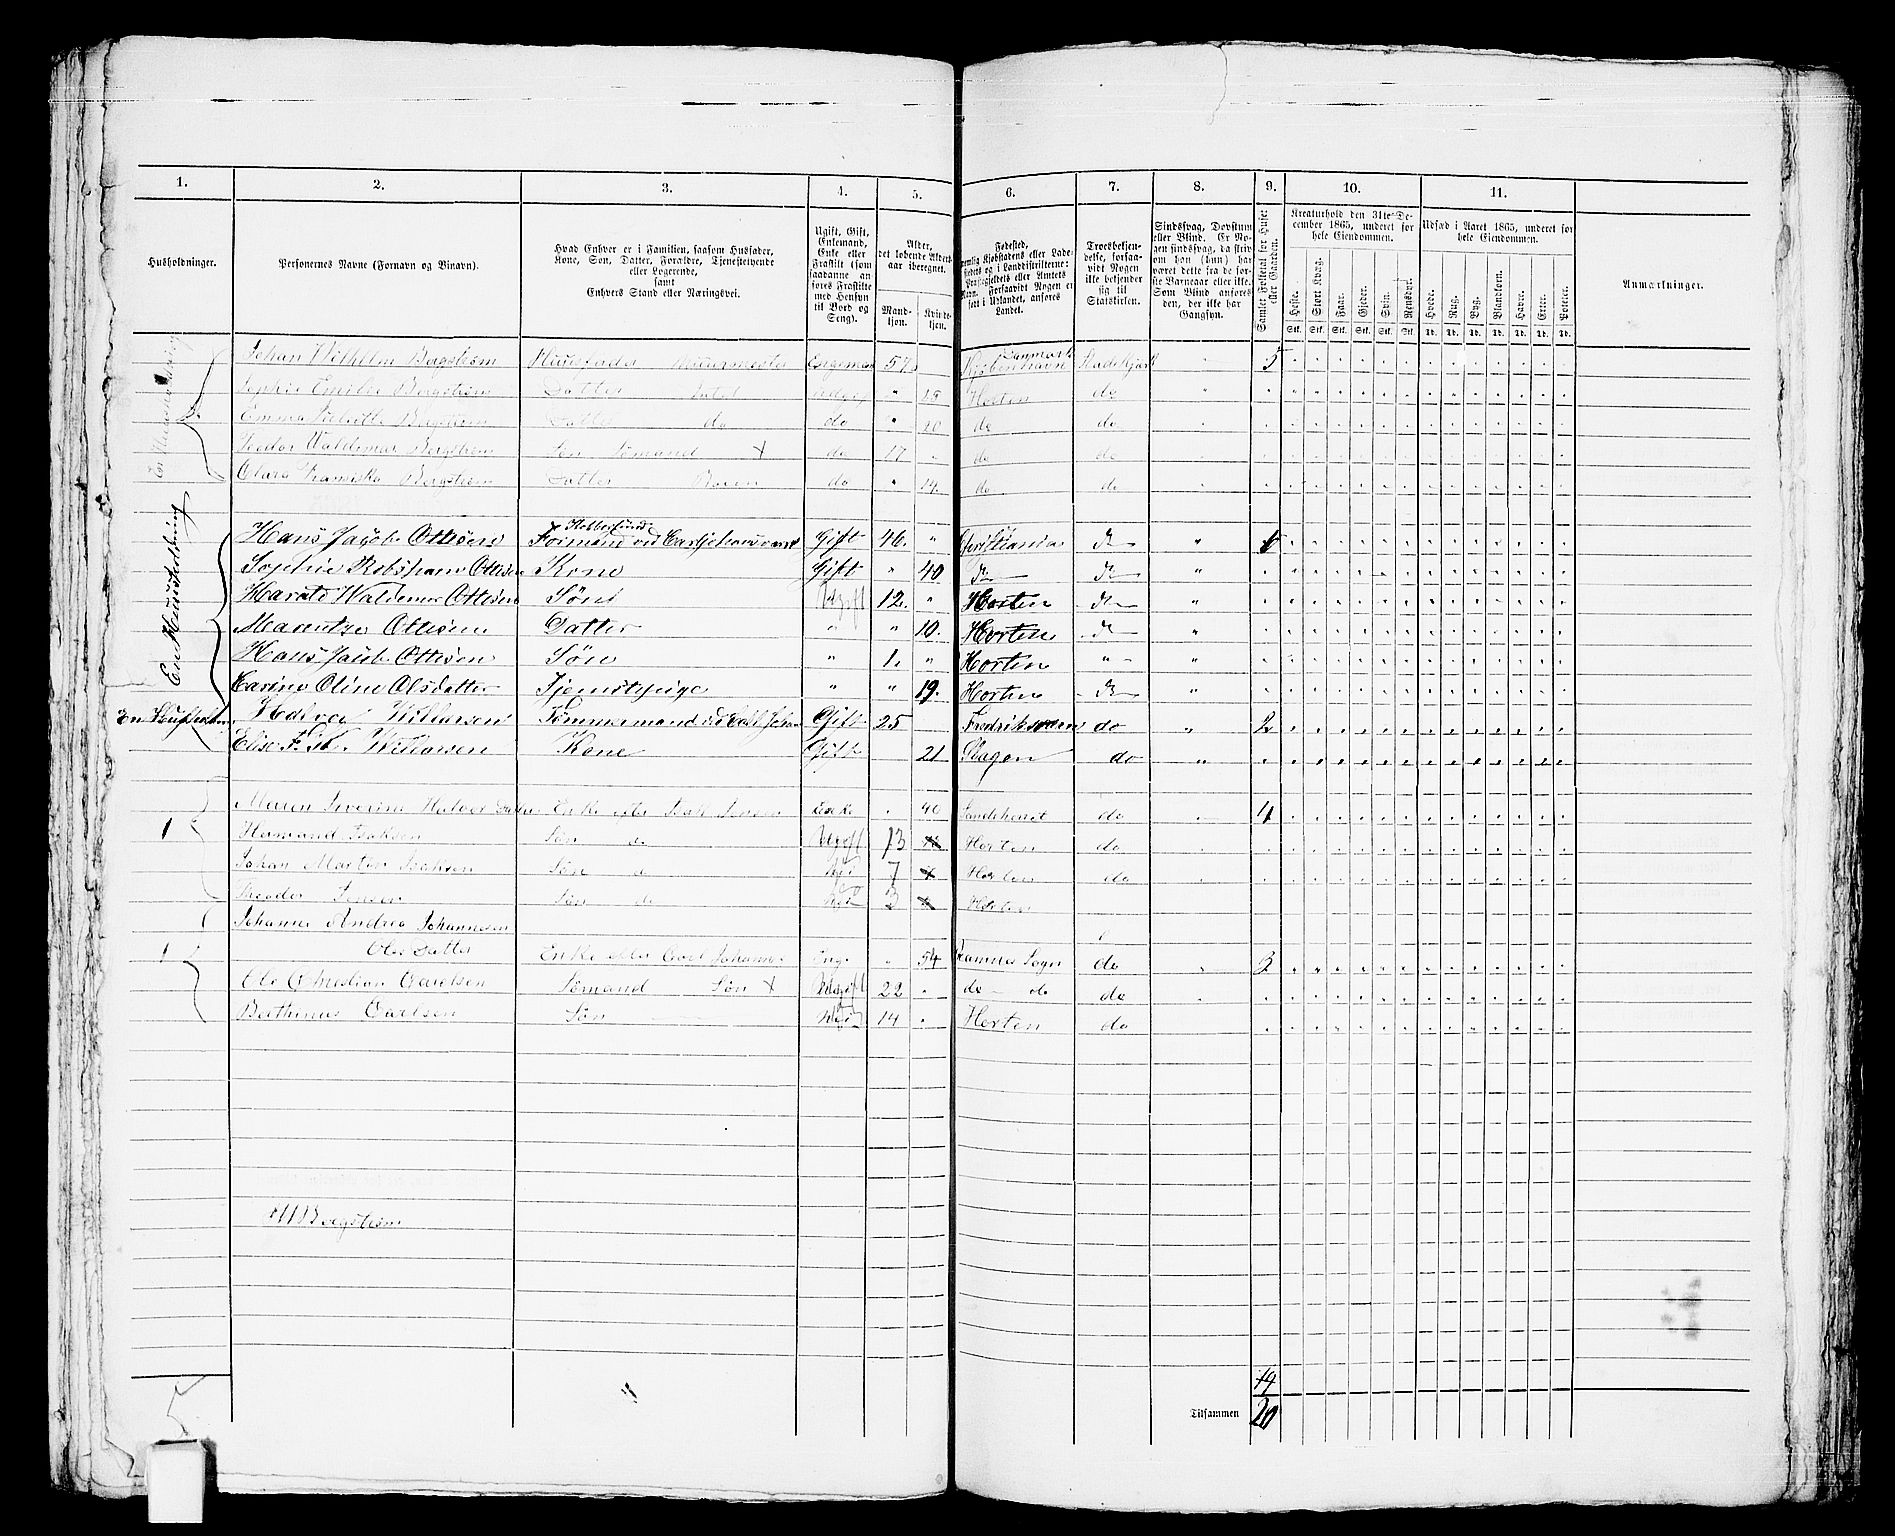 1. 2. 3. 4. 5. 6. 7. 8. 9. 10. 11.
Husholdninger.
Personernes Navne (Fornavn og Binavn).
Hvad Enhver er i Familien, saasom Husfader,
Kone, Søn, Datter, Forældre, Tjenestetyende
eller Logerende,
samt
Enhvers Stand eller Næringsvei.
Ugift, Gift,
Enkemand,
Enke eller
Fraskilt (som
saadanne an-
føres Fraskilte
med Hensyn
til Bord og
Seng).
Alder,
det løbende Alders-
aar iberegnet.
Mand-
kjøn.
Kvinde-
kjøn.
Fødested,
nemlig Kjøbstadens eller Lade-
stedets og i Landdistrikterne:
Præstegjeldets eller Amtets
Navn. Forsaavidt Nogen er
født i Udlandet, anføres
Landet.
Troesbekjen-
delse, forsaa-
vidt Nogen
ikke bekjender
sig til
Statskirken.
Sindssvag, Døvstum
eller Blind. Er No-
gen sindssvag, da skriv
om han (hun) har
været dette fra de før-
ste Barneaar eller ikke.
Som Blind anføres
den, der ikke har
Gangsyn.
Samlet Folketal for Huset
eller Gaarden.
Kreaturhold den 31te De-
cember 1865, underet for
hele Eiendommen.
Heste. Stort Kvæg. Faar. Gjeder. Svin. Rensdyr.
Stk. Stk. Stk. Stk. Stk. Stk.
Udsæd i Aaret 1865, underet for
hele Eiendommen.
Hvede. Rug. Byg. Blandkorn. Havre. Erter. Poteter.
Td. Td. Td. Td. Td. Td. Td.
Anmærkninger.
Johan Wilhelm Bergstrøm Huusfader Muurmester 57 Danmark Kjøbenhavn 5
Sophie Emilie Bergstrøm Datter " 25 Horten do
Emma Bergstrøm Datter do do " 20 do do
Teodor Valdemar Bergstrøm Søn Sømand + do 17 do do
Clara Fransiska Bergstrøm Datter do " 14 do do
En Huusholdning
Hans Jacob Ottesen Formand ved Carljohansværn Gift 46. " Christiania do " 6
Sophie Ottesen Kone Gift " 40 do do "
Harald Waldemar Ottesen Søn Ugift 12. " Horten do "
Marentze Ottesen Datter " " 10. Horten do "
Hans Jacob Ottesen Søn " 1. " Horten " "
Karine Oline Olsdatter Tjenestepige " " 19. Horten do "
Tømmermand Gift 25 Fredriksværn do " 2
Elise Kone Gift 21 Slagen do "
Maren Severine Enke efter Isak Jensen Enke " 40 do 4
1 Isaksen Søn do Ugift 13 Horten do
Johan Martin Isaksen Søn do 7 Horten do
Theodor Jensen Søn do 3 Horten
Johanne Andrea Johannesen
1 Olsdatter Enke efter Carl Johannes " 54 Ramnes Sogn do " 3
Ole Christian Carelsen Sømand Søn + Ugift 22 " do do do
Berthinus Carlsen Søn 14 " Horten do
Bergstrøm
19
Tilsammen 20